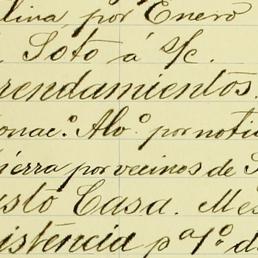 lina por Enero
Soto á s/c.
rendamientos.
onac.º Alº. por noti
ierra por vecinos de S
usto Casa. Mes
istencia pª 1º d